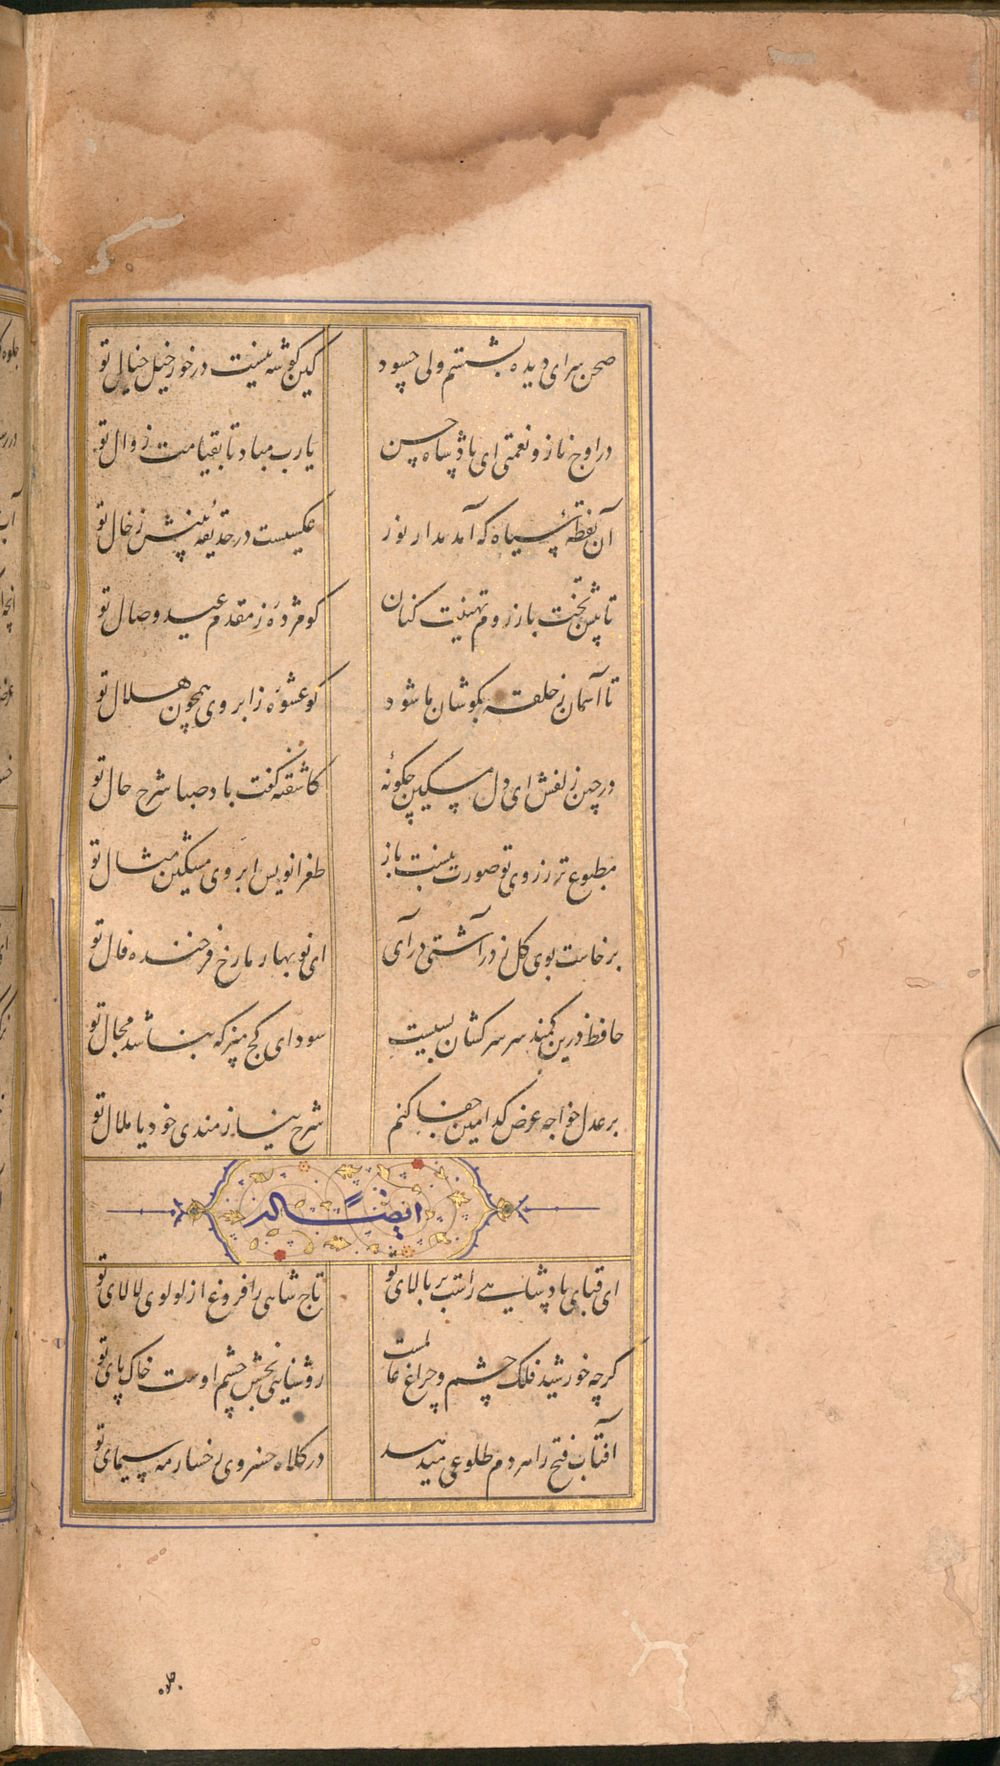 صحن سرای دیده بشستم ولی چسود کین گوشه نیست درخور خیل خیال تو
در اوج ناز و نعمتی ای پادشاه حسن یا رب مباد تا بقیامت زوال تو
آن نقطهٔ سیاه که آمد مدار نور عکسیست در حدیقهٔ بینش ز خال تو
تا پیش بخت باز روم تهنیت کنان کو مژدهٔ ز مقدم عید وصال تو
تا آسمان ز حلقه بگوشان ما شود کو عشوهٔ ز ابروی همچون هلال تو
در چین زلفش ای دل مسکین چگونهٔ کاشفته گفت باد صبا شرح حال تو
مطبوع تر ز روی تو صورت نبست باز طغرانویس ابروی مشکین مثال تو
برخاست بوی گل ز در آشتی درآی ای نوبهار ما رخ فرخنده فال تو
حافظ درین کمند سر سرکشان بسیست سودای کج مپز که نباشد مجال تو
بر عدل خواجه عرض کدامین جفا کنم شرح نیازمندی خود یا ملال تو
ایضاً له
ای قبای پادشاهی راست بر بالای تو تاج شاهی را فروغ از لولوی لالای تو
گرچه خورشید فلک چشم و چراغ عالمست روشنایی بخش چشم اوست خاک پای تو
آفتاب فتح را هر دم طلوعی میدهد در کلاه خسروی رخسار مه سیمای تو
جلوه